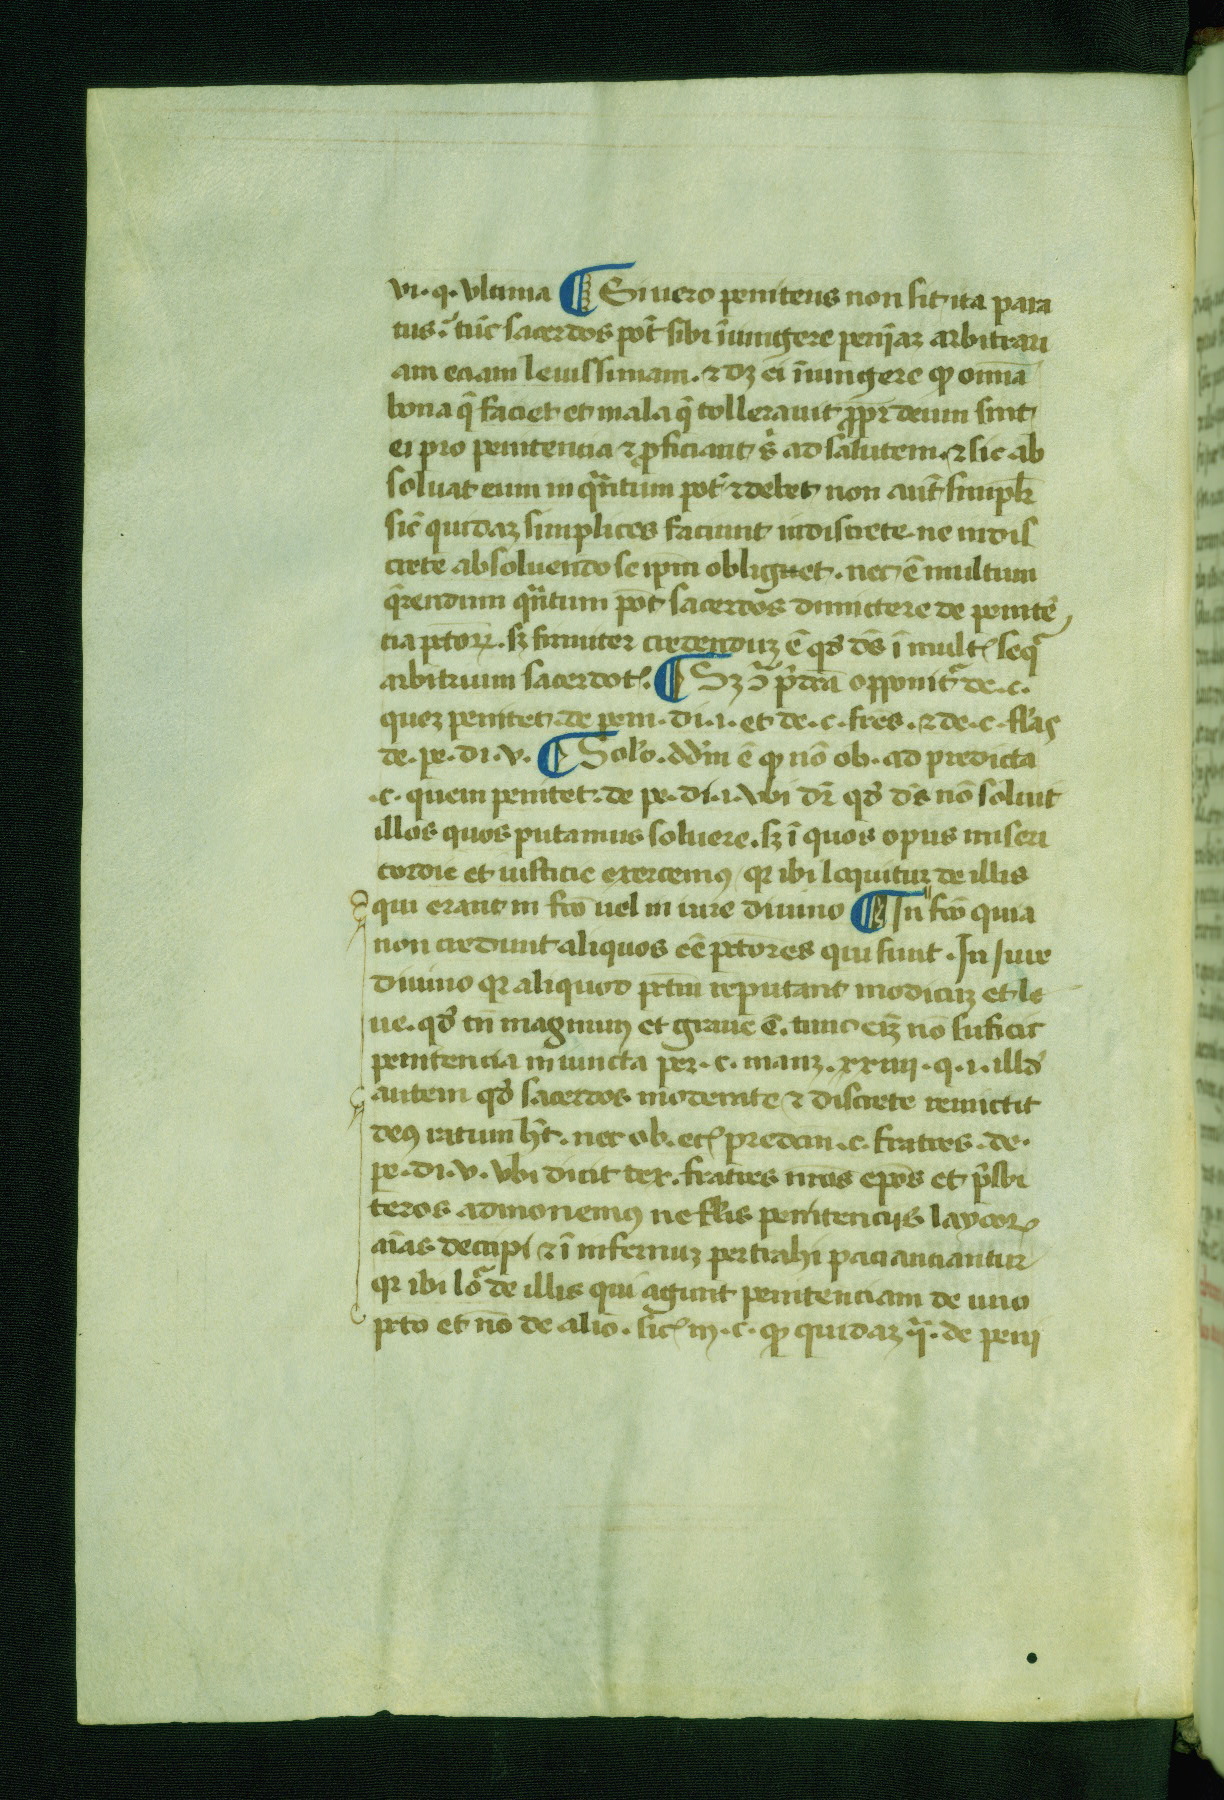 vi. q. vltima ¶ Si uero penitens non sit ita para
tus. tūc sacerdos pot̄ sibi īiungere penīaz arbitrari
am eciam leuissimam. ⁊ dz ei īiungere ꝙ om̄ia
bona q̄ faciet et mala q̄ tollerauit ꝓpr̄ deum sint
ei pro penitencia ⁊ ꝓficiant s̄ ad salutem. ⁊ sic ab
soluat eum in qn̄tum pot̄ ⁊ debet non aūt simplr̄
sic̄ quidaz simplices faciunt indiscrete. ne indis
crete absoluendo se ipm̄ obliguet. nec ē multum
q̄rendum qn̄tum pot̄ sacerdos dimictere de penitē
cia pctōꝝ. sz firmiter credenduz ē qd̓ dn̄s ī mult̄ seqr̄
arbitrium sacerdot̄. ¶ Sz ↄ̄ p̄dc̄a opponit̄ de. c.
quez penitet. de peni. di. i. et de. c. fr̄es. ⁊ de. c. fl̄as
de. pe. di. v. ¶ Sol̄o. dd̄m ē ꝙ nō ob. ad predicta
.c. quem penitet. de pe. di. i. vbi dr̄ qd̓ dn̄s nō soluit
illos quos putamus soluere. sz ī quos opus miseri
cordie et iusticie exercemꝰ qr ibi loquitur de illis
qui errant in fc̄o uel in iure diuino ¶ In fc̄o quia
non credunt aliquos eē pctōres qui sunt. In Iure
diuino qr aliquod pctm̄ reputant modicuz et le
ue. qd̓ tn̄ magnum et graue ē. tunc eiz nō suficit
penitencia iniuncta per. c. manz. xxiiii. q. i. illd̓
autem qd̓ sacerdos moderate ⁊ discrete remictit
deꝰ ratum h̄t. nec ob. et̄ predcm̄. c. fratres. de.
pe. di. v. vbi dicit tex. fratres nr̄os ep̄os et p̄sbi
teros admonemꝰ ne fl̄is penitencijs laycoꝝ
aīas decipi ⁊ ī infernuz pertrahi paciantiantur
qr ibi lōr de illis qui agunt penitenciam de uno
pctō et nō de alio. sic̄ in. c. ꝙ quidaz q̄. de peni